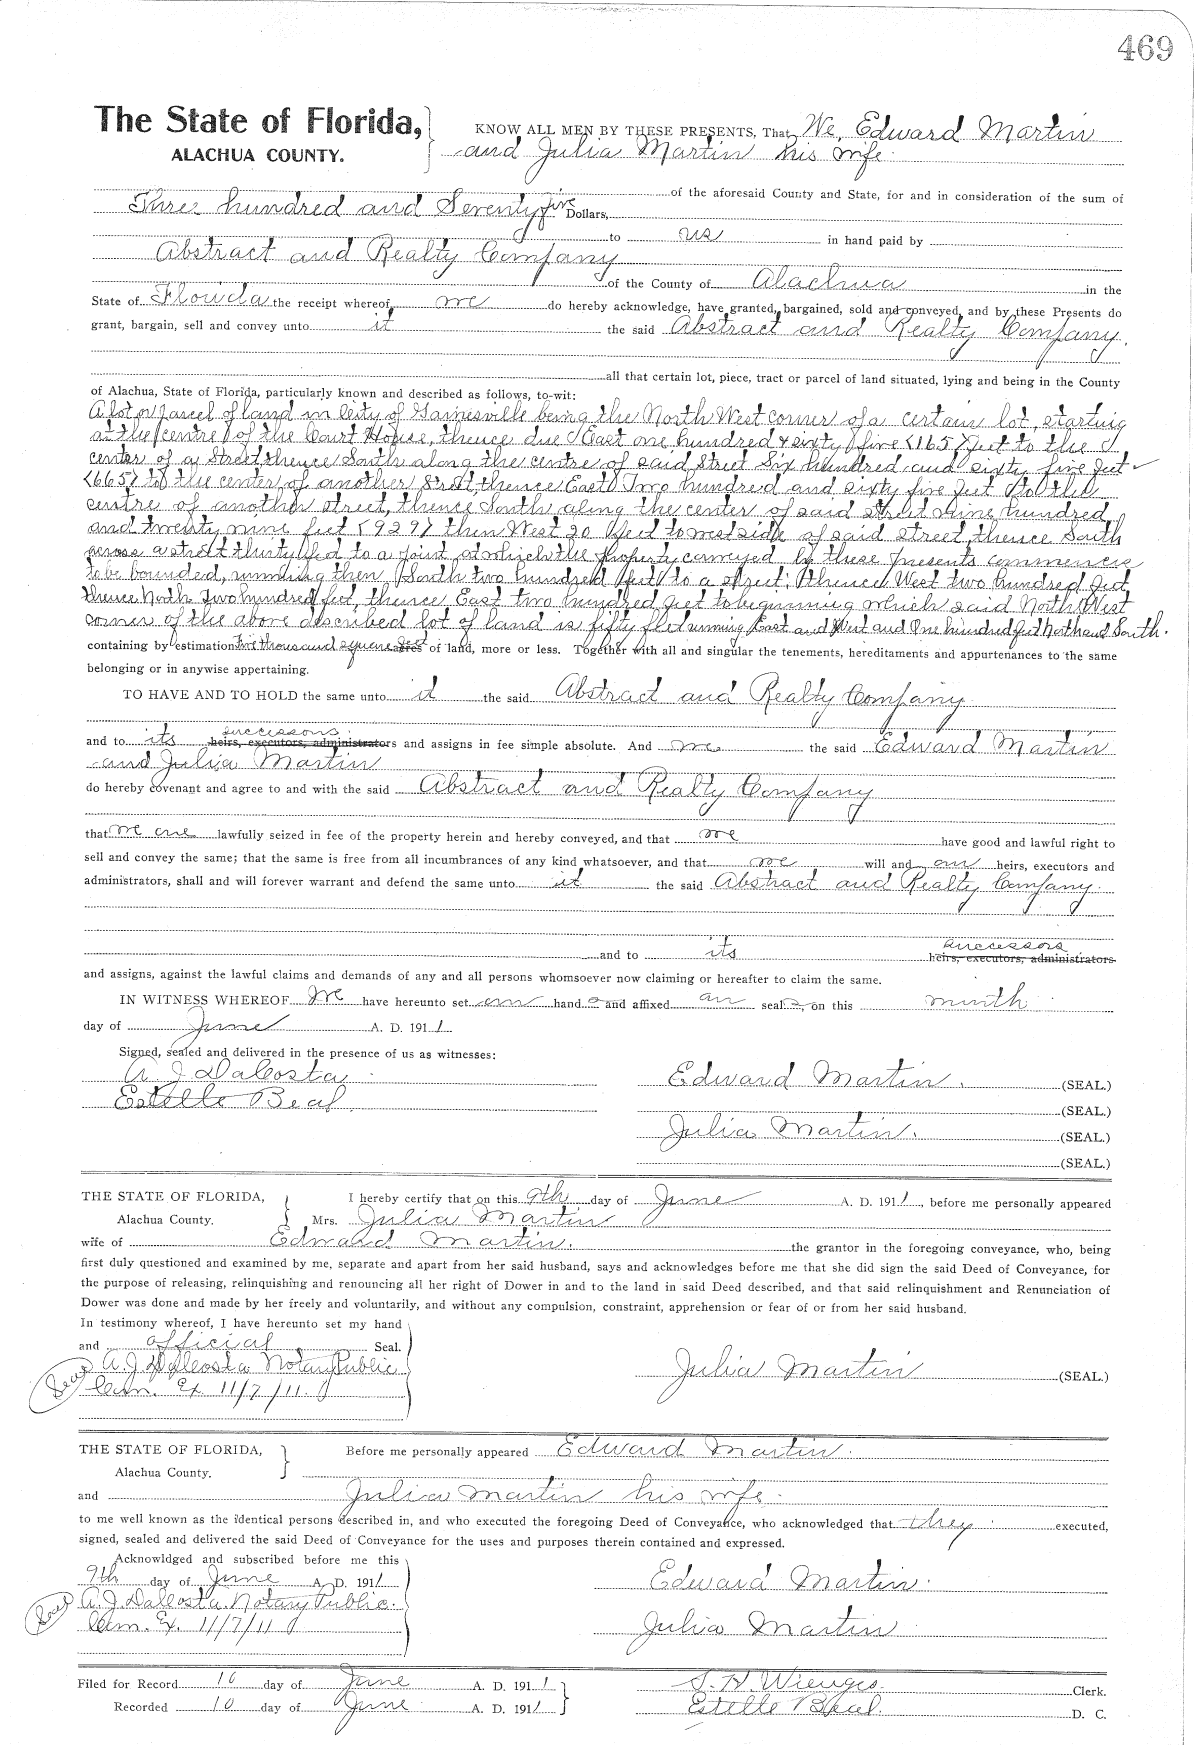 469
The State of Florida,
ALACHUA COUNTY.
KNOW ALL MEN BY THESE PRESENTS, That We, Edward Martin
and Julia Martin his wife
of the aforesaid County and State, for and in consideration of the sum of
Three hundred and Seventy five Dollars,
to us in hand paid by
Abstract and Realty Company
of the County of Alachua in the
State of Florida the receipt whereof we do hereby acknowledge, have granted, bargained, sold and conveyed, and by these Presents do
grant, bargain, sell and convey unto it the said Abstract and Realty Company.
all that certain lot, piece, tract or parcel of land situated, lying and being in the County
of Alachua, State of Florida, particularly known and described as follows, to-wit:
A lot or parcel of land in City of Gainesville being the North West corner of a certain lot, starting
at the centre of the Court House, thence due East one hundred & sixty five (165) feet to the
center of a Street thence South along the centre of said Street Six hundred and sixty five feet
(665) to the center of another Street, thence East Two hundred and sixty five feet to the
centre of another street, thence South along the center of said street nine hundred
and twenty nine feet (929) then West 20 feet to west side of said street, thence South
across a street thirty feet to a point at which the property conveyed by these presents commence
to be bounded, running then South two hundred feet to a street; thence West two hundred feet
thence North Two hundred feet, thence East two hundred feet to beginning which said North West
corner of the above described lot of land is fifty feet running East and West and One hundred feet North and South.
containing by estimation five thousand square feet acres of land, more or less. Together with all and singular the tenements, hereditaments and appurtenances to the same
belonging or in anywise appertaining.
TO HAVE AND TO HOLD the same unto it the said Abstract and Realty Company
successors
and to its heirs, executors, administrators and assigns in fee simple absolute. And we the said Edward Martin
and Julia Martin
do hereby covenant and agree to and with the said Abstract and Realty Company
that we are lawfully seized in fee of the property herein and hereby conveyed, and that we have good and lawful right to
sell and convey the same; that the same is free from all incumbrances of any kind whatsoever, and that we will and our heirs, executors and
administrators, shall and will forever warrant and defend the same unto it the said Abstract and Realty Company.
successors
and to its heirs, executors, administrators
and assigns, against the lawful claims and demands of any and all persons whomsoever now claiming or hereafter to claim the same.
IN WITNESS WHEREOF We have hereunto set our hands and affixed our seals, on this ninth
day of June A. D. 1911.
Signed, sealed and delivered in the presence of us as witnesses:
A J DaCosta
Estelle Beal
Edward Martin. (SEAL.)
(SEAL.)
Julia Martin. (SEAL.)
(SEAL.)
THE STATE OF FLORIDA,
Alachua County.
I hereby certify that on this 9th day of June A. D. 1911, before me personally appeared
Mrs. Julia Martin
wife of Edward Martin. the grantor in the foregoing conveyance, who, being
first duly questioned and examined by me, separate and apart from her said husband, says and acknowledges before me that she did sign the said Deed of Conveyance, for
the purpose of releasing, relinquishing and renouncing all her right of Dower in and to the land in said Deed described, and that said relinquishment and Renunciation of
Dower was done and made by her freely and voluntarily, and without any compulsion, constraint, apprehension or fear of or from her said husband.
In testimony whereof, I have hereunto set my hand
and official Seal.
Seal A. J. DaCosta Notary Public
Com. Ex. 11/7/11
Julia Martin (SEAL.)
THE STATE OF FLORIDA,
Alachua County.
Before me personally appeared Edward Martin.
and Julia Martin his wife.
to me well known as the identical persons described in, and who executed the foregoing Deed of Conveyance, who acknowledged that they executed,
signed, sealed and delivered the said Deed of Conveyance for the uses and purposes therein contained and expressed.
Acknowldged and subscribed before me this
9th day of June A. D. 1911
Seal A. J. DaCosta. Notary Public.
Com. Ex. 11/7/11
Edward Martin.
Julia Martin
Filed for Record 10 day of June A. D. 1911
Recorded 10 day of June A. D. 1911
S. H. Wienges. Clerk.
Estelle Beal. D. C.